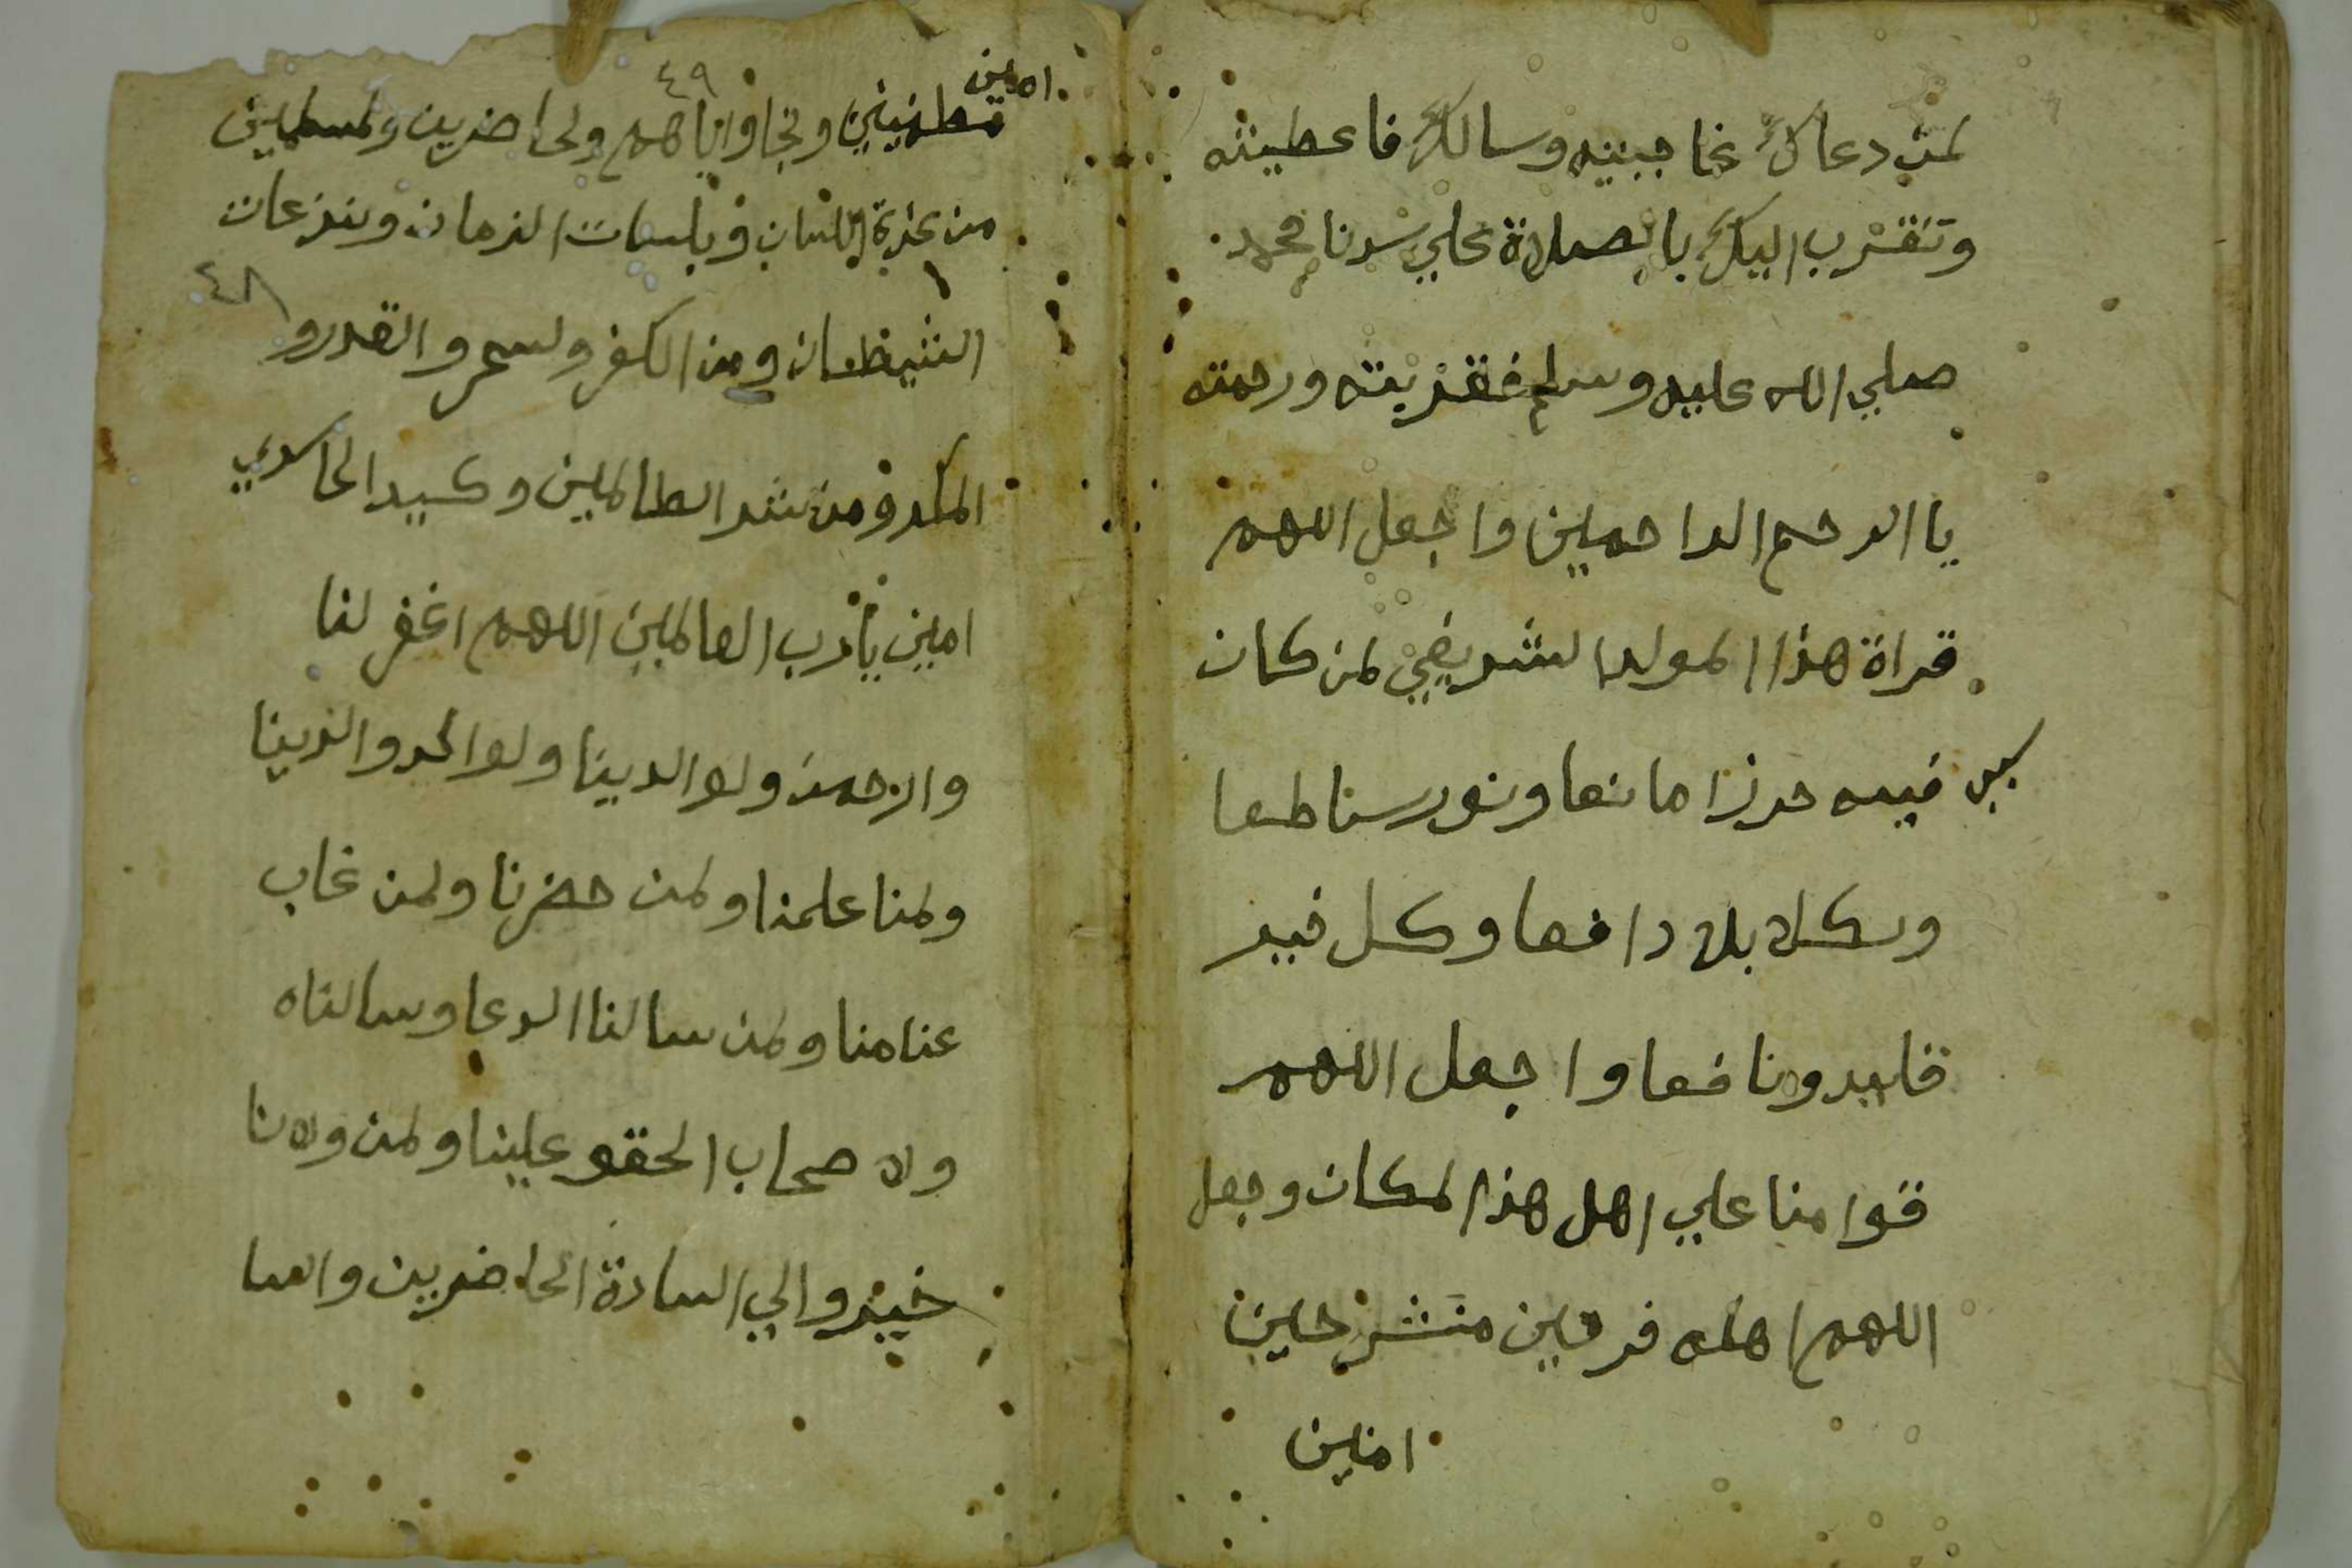 لمن دعاك غاجبيته وسالك فاعطيته
وتقرب اليك بالصلاة علي سدنا محمد
صلي الله عليه وسلم فقربته ورحمته
يا الرحم الراحمين واجعل اللهم
قراة هذا المولد الشريفي لمن كان
فيه حرزا مانعا ونورسناطعا
وبكل بلا دافعا وكل خير
قايدونافعا واجعل اللهم
قوامنا علي اهل هذا لمكان وجعل
اللهم اهله فرحين منشرحين
امنين
امين
٤٩
مطمنين ونجاواياهم ولحاضرين ولمسلمين
من عثرة اللسان وبلسات الزمان ونزعات
٤٨
الشيطان ومن الكفر ولسحر والقدرو
المكرو من شر الطالمين وكيد الحاسدي
امين يارب العالمين اللهم اغفر لنا
والرحمنا ولوالدينا ولوالدو الدينا
ولمنا علمنا ولمن حضرنا ولمن غاب
عنامنا ولمن سالنا الدعا وسالناه
ولا صحاب الحقو علينا ولمن ولانا
خيرو الي السادة الحاضرين والسا